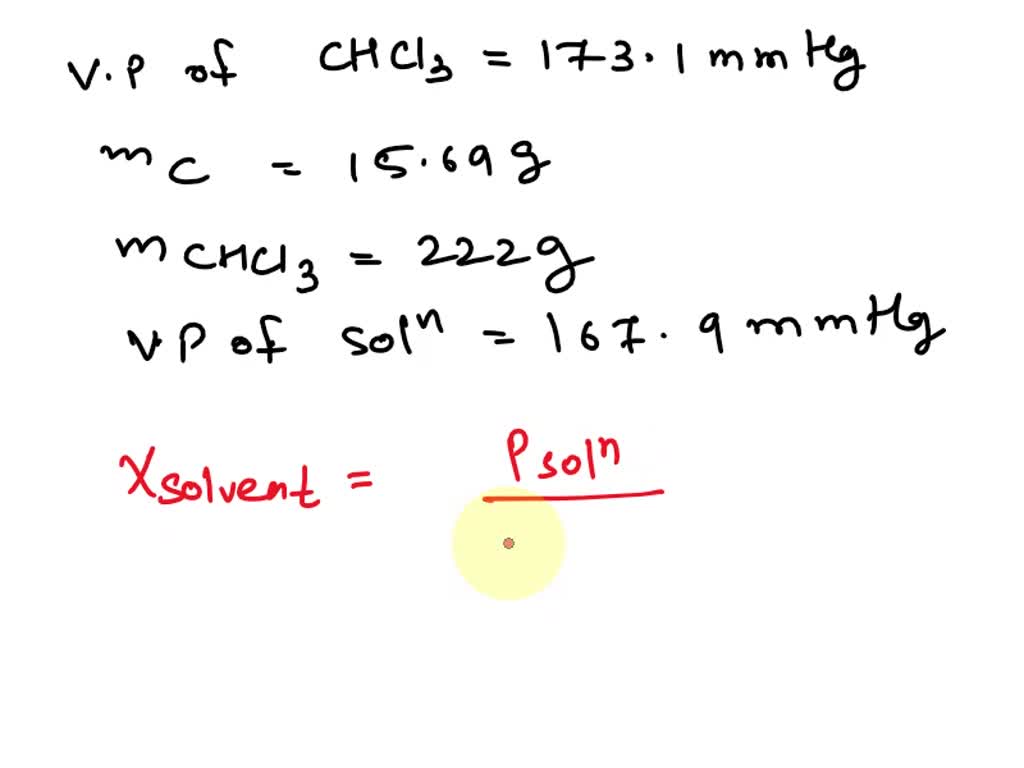 V.P of CHCl3 = 173.1 mmHg
mC = 15.69 g
mCHCl3 = 222g
V.P of solⁿ = 167.9 mmHg
Xsolvent = Psolⁿ